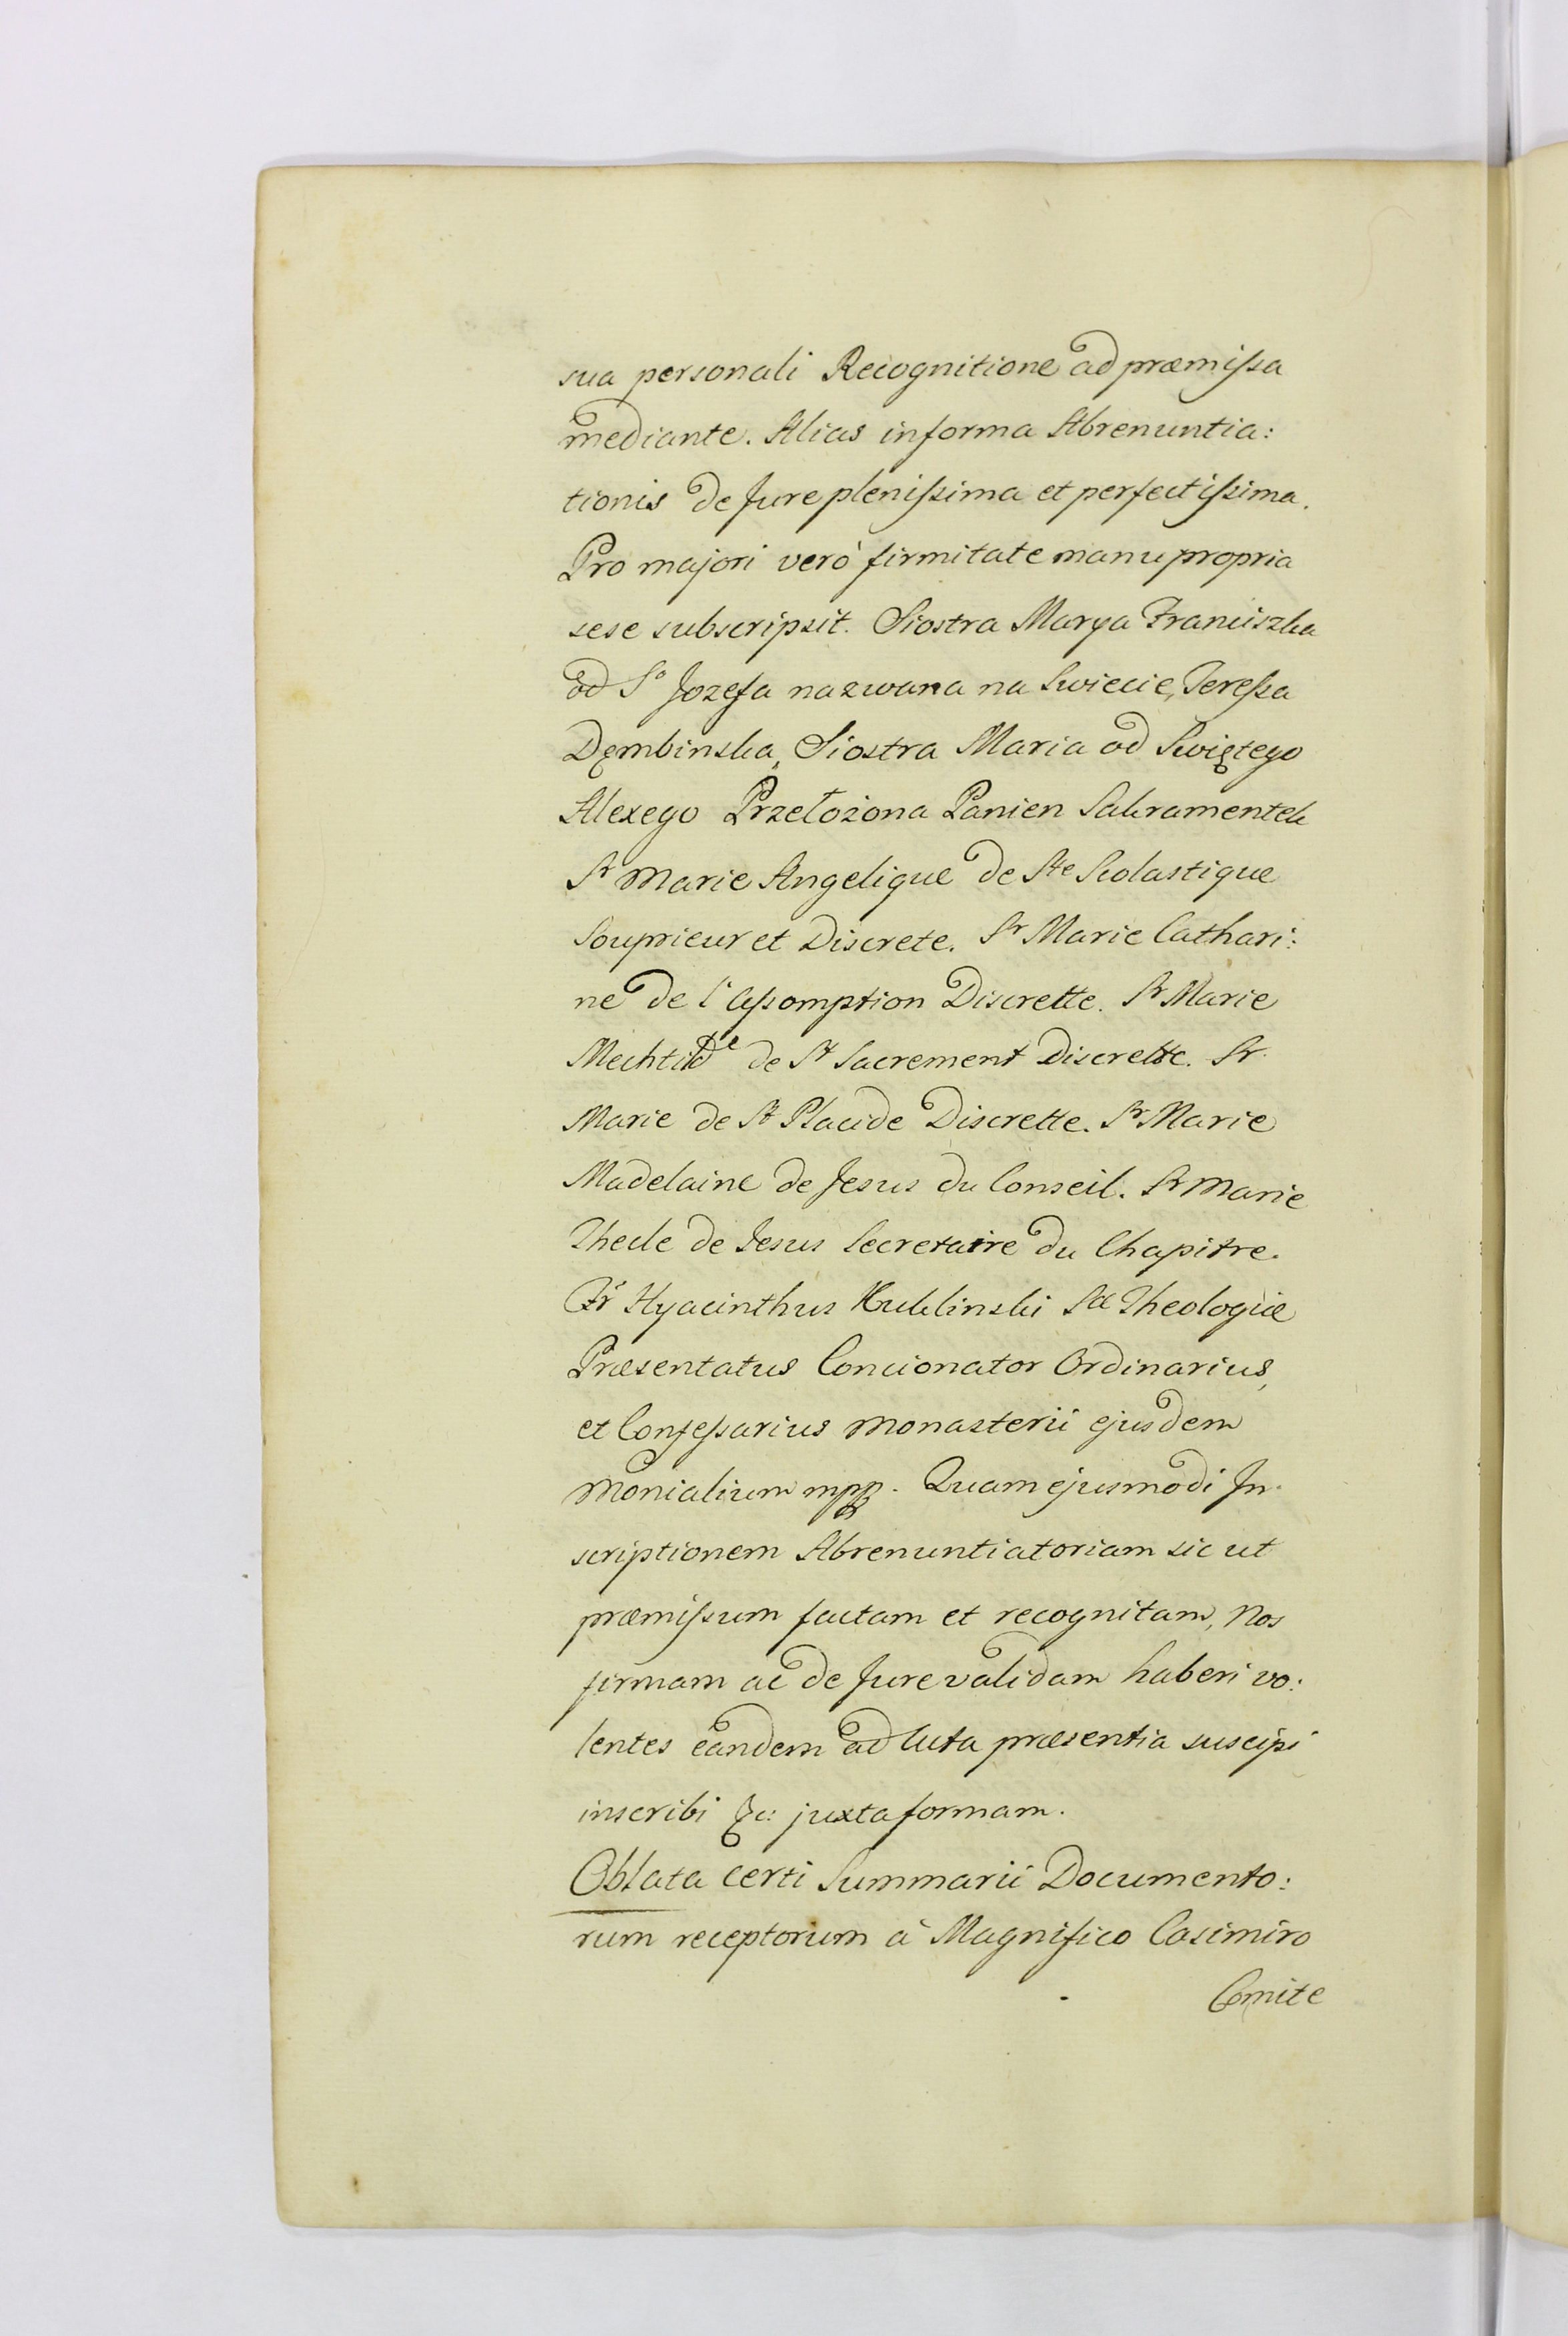 sua personali Recognitione ad præmissa
mediante. Alias in forma Abrenuntia:
tionis de Jure plenissima et perfectissima.
Pro majori verò firmitate manu propria
sese subscripsit. Siostra Marya Franciszka
od Sº Jozefa nazwana na Swiecie, Teressa
Dęmbinska, Siostra Maria od Swiętego
Alexego Przełożona Panien Sakramentek
Sr Marie Angelique de Ste Scolastique
Souprieur et Discrete. Sr Marie Cathari:
ne de l'assomption Discrette. Sr Marie
Mechtide de St Sacrement Discrette. Sr.
Marie de St Placide Discrette. Sr Marie
Madelaine de Jesus du Conseil. Sr Marie
Thecle de Jesus Secretaire du Chapitre.
Fr Hyacinthus Kuklinski Sæ Theologiæ
Præsentatus Concionator Ordinarius,
et Confessarius Monasterii ejusdem
Monialium mpp. Quam ejusmodi In-
scriptionem Abrenuntiatoriam sic ut
præmissum factam et recognitam, Nos
firmam ac de Jure validam haberi vo:
lentes eandem ad Acta præsentia suscipi
inscribi &c: juxta formam.
Oblata certi Summarii Documento:
rum receptorum à Magnifico Casimiro
Comite